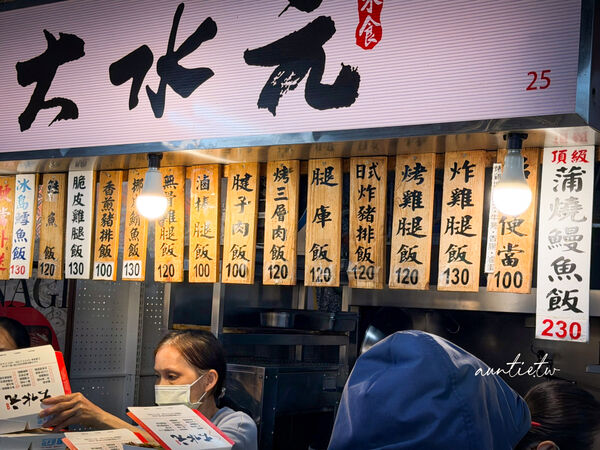 大水元
米食
25
冰島鱈魚飯
130
魚飯
120
脆皮雞腿飯
120
香煎豬排飯
100
魚飯
130
骨腿飯
160
滷飯
100
腱子肉飯
100
烤三層肉飯
120
腿庫飯
120
日式炸豬排飯
120
烤雞腿飯
120
炸雞腿飯
130
便當
100
頂級
蒲燒鰻魚飯
230
大水元
auntietw